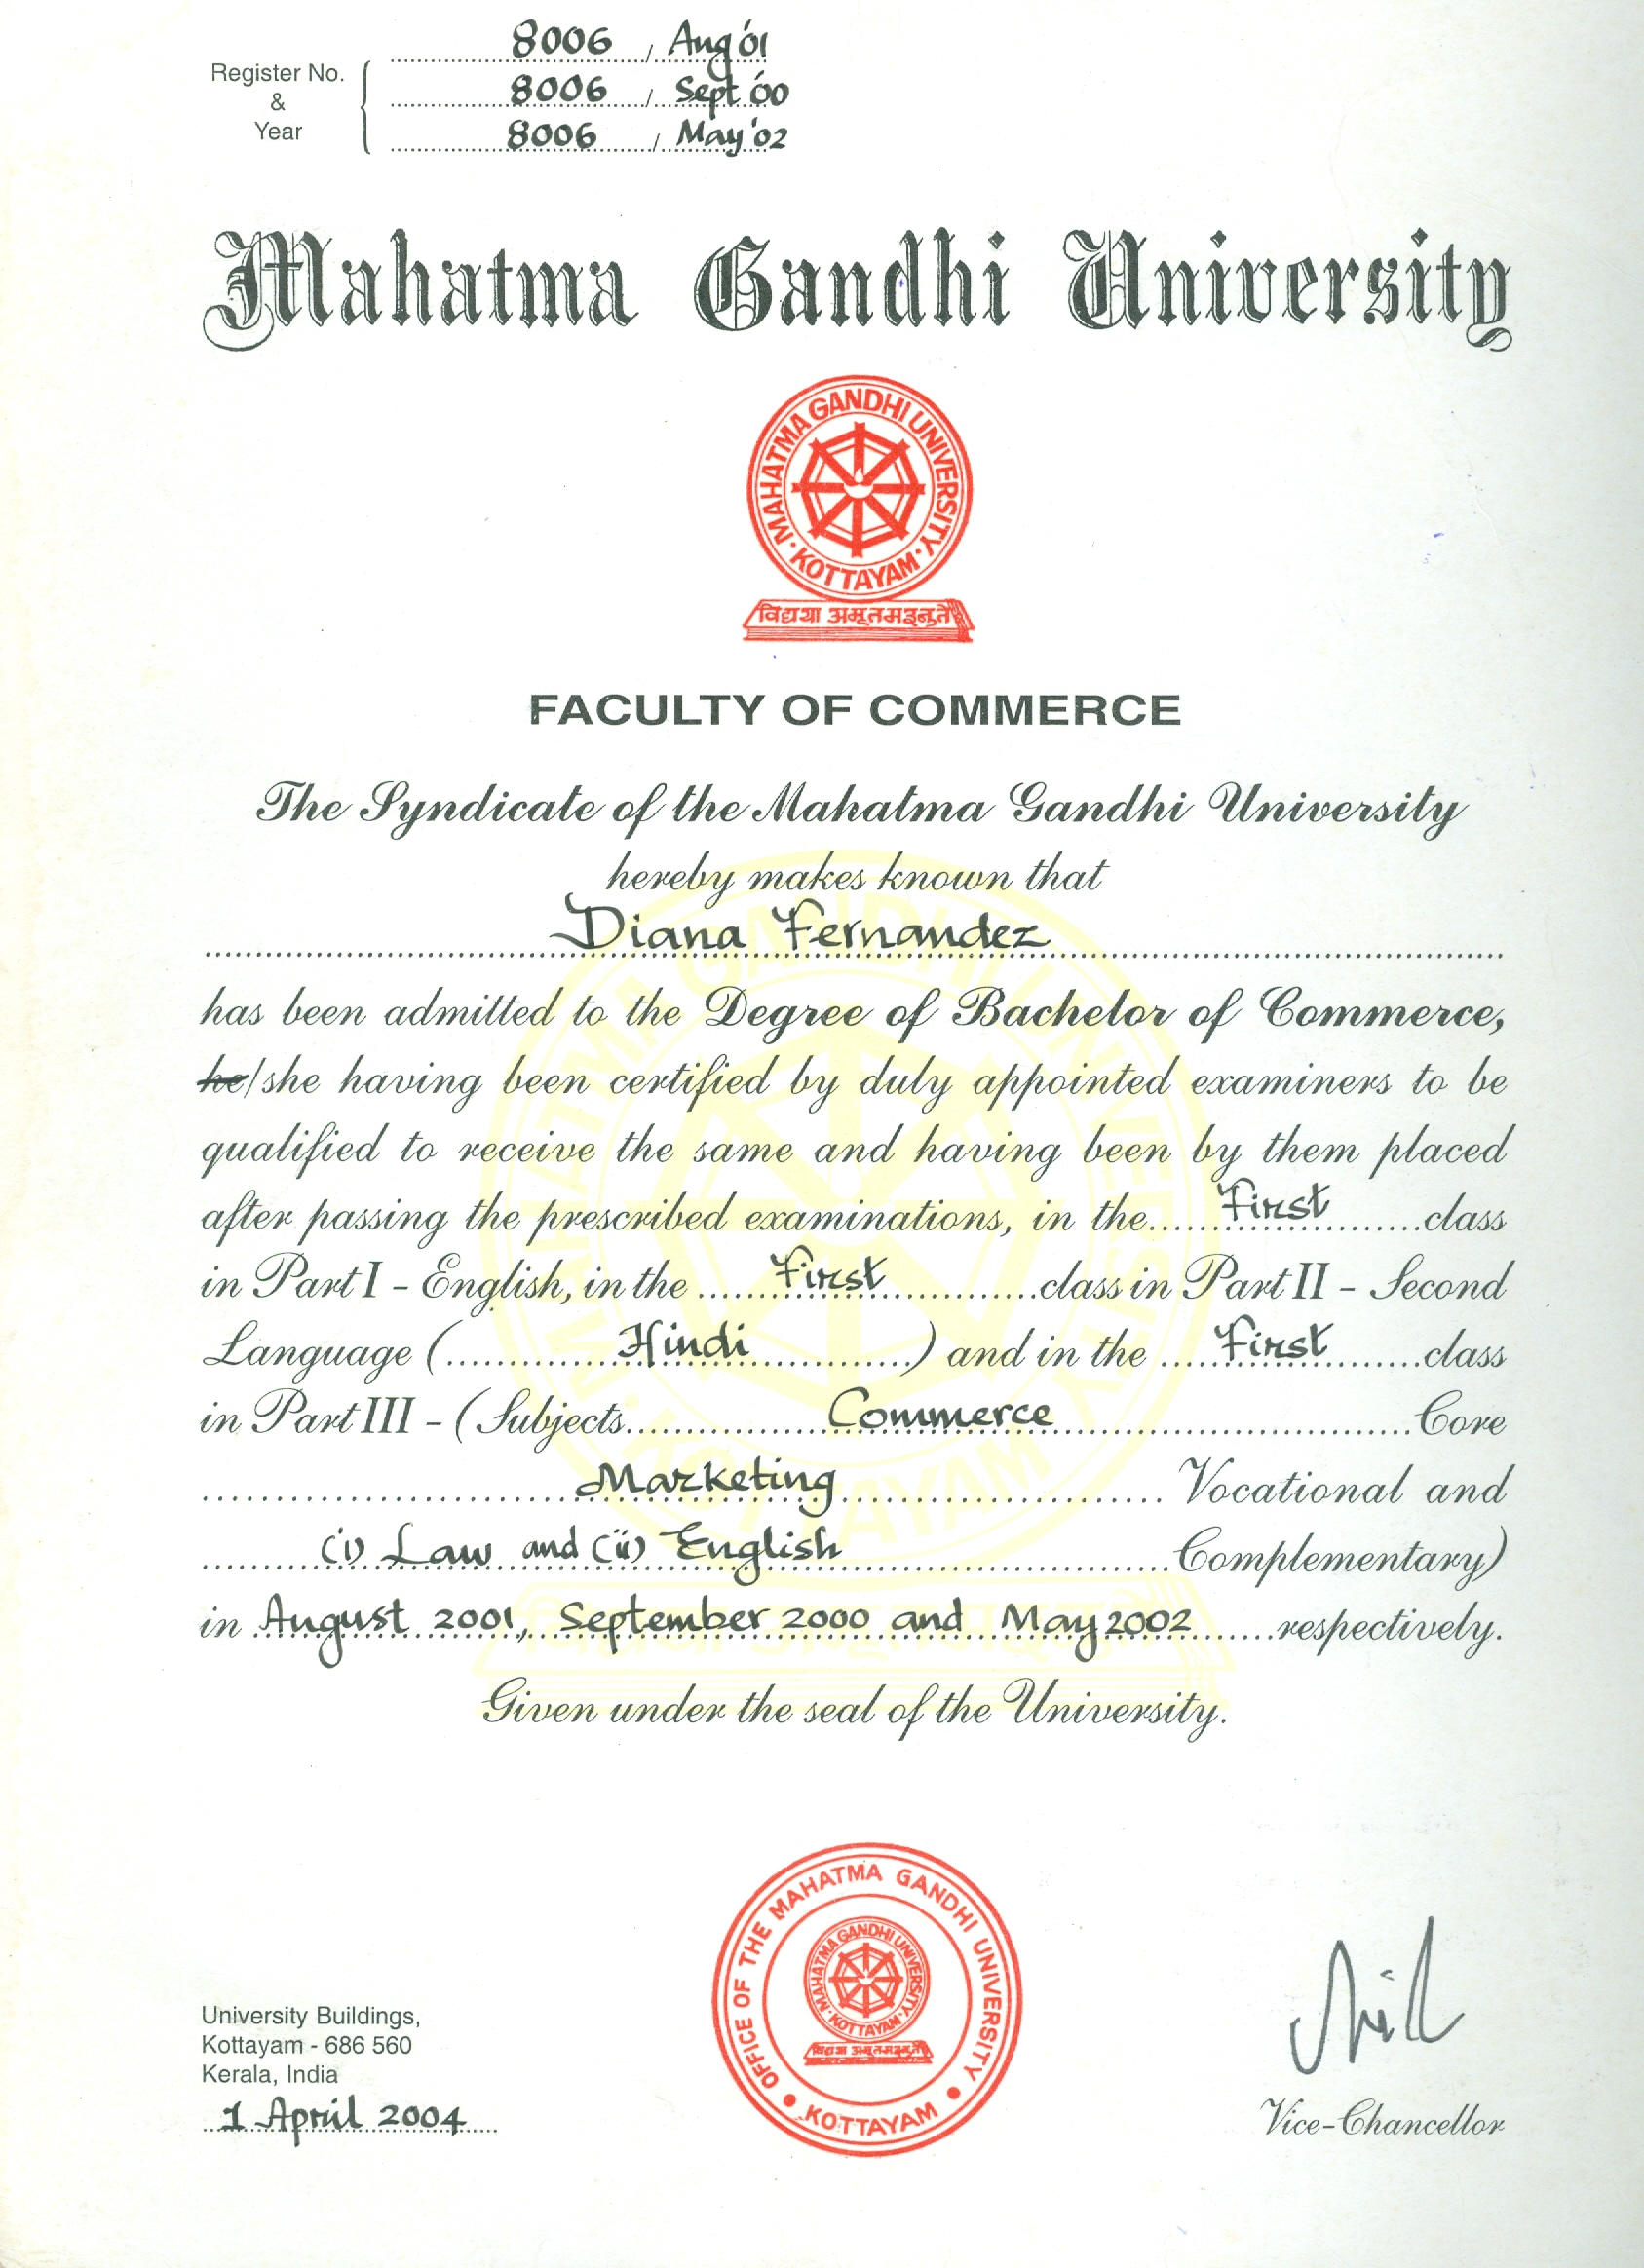 8006 / Aug '01
Register No. & Year { 8006 / Sept '00
8006 / May '02
Mahatma Gandhi University
MAHATMA GANDHI UNIVERSITY
· KOTTAYAM ·
विद्यया अमृतमश्नुते
FACULTY OF COMMERCE
The Syndicate of the Mahatma Gandhi University
hereby makes known that
Diana Fernandez
has been admitted to the Degree of Bachelor of Commerce,
he/she having been certified by duly appointed examiners to be
qualified to receive the same and having been by them placed
after passing the prescribed examinations, in the First class
in Part I - English, in the First class in Part II - Second
Language (Hindi) and in the First class
in Part III - (Subjects Commerce Core
Marketing Vocational and
(i) Law and (ii) English Complementary)
in August 2001, September 2000 and May 2002 respectively.
Given under the seal of the University.
OFFICE OF THE MAHATMA GANDHI UNIVERSITY
• KOTTAYAM •
MAHATMA GANDHI UNIVERSITY
· KOTTAYAM ·
विद्यया अमृतमश्नुते
University Buildings,
Kottayam - 686 560
Kerala, India
1 April 2004
Vice-Chancellor